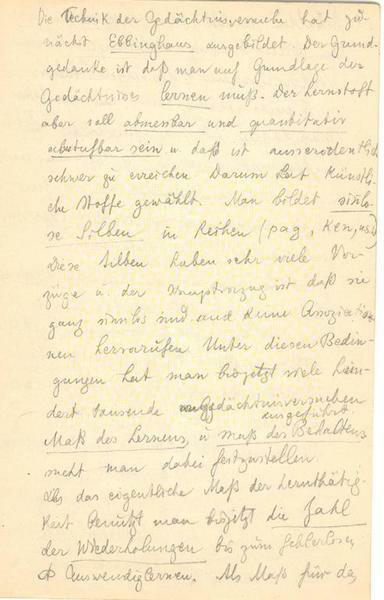 Die Technik der Gedächtnisversuche hat zu-
nächst Ebbinghaus ausgebildet. Der Grund-
gedanke ist daß man auf Grundlage des
Gedächtnises lernen muß. Der Lernstoff
aber soll abmessbar und quantitativ
abstufbar sein u. daß ist ausserordentlich
schwer zu erreichen Darum hat künstli-
che Stoffe gewählt. Man bildet sinnlo-
se Silben in Reihen (pag, ken, us.)
Diese Silben haben sehr viele Vor-
züge u. der Hauptvorzug ist daß sie
ganz sinnlos sind und keine Assoziatio-
nen hervorrufen. Unter diesen Bedin-
gungen hat man bisjetzt viele hun-
dert tausende Gedächtnisversuchen
ausgeführt.
Maß des Lernens, u maß des Behaltens
sucht man dabei festzustellen.
Als das eigentliche Maß der Lernthätig-
keit benutzt man bisjetzt die Zahl
der Wiederholungen bis zum Fehlerlosen
Auswendiglernen. Als Maß für das